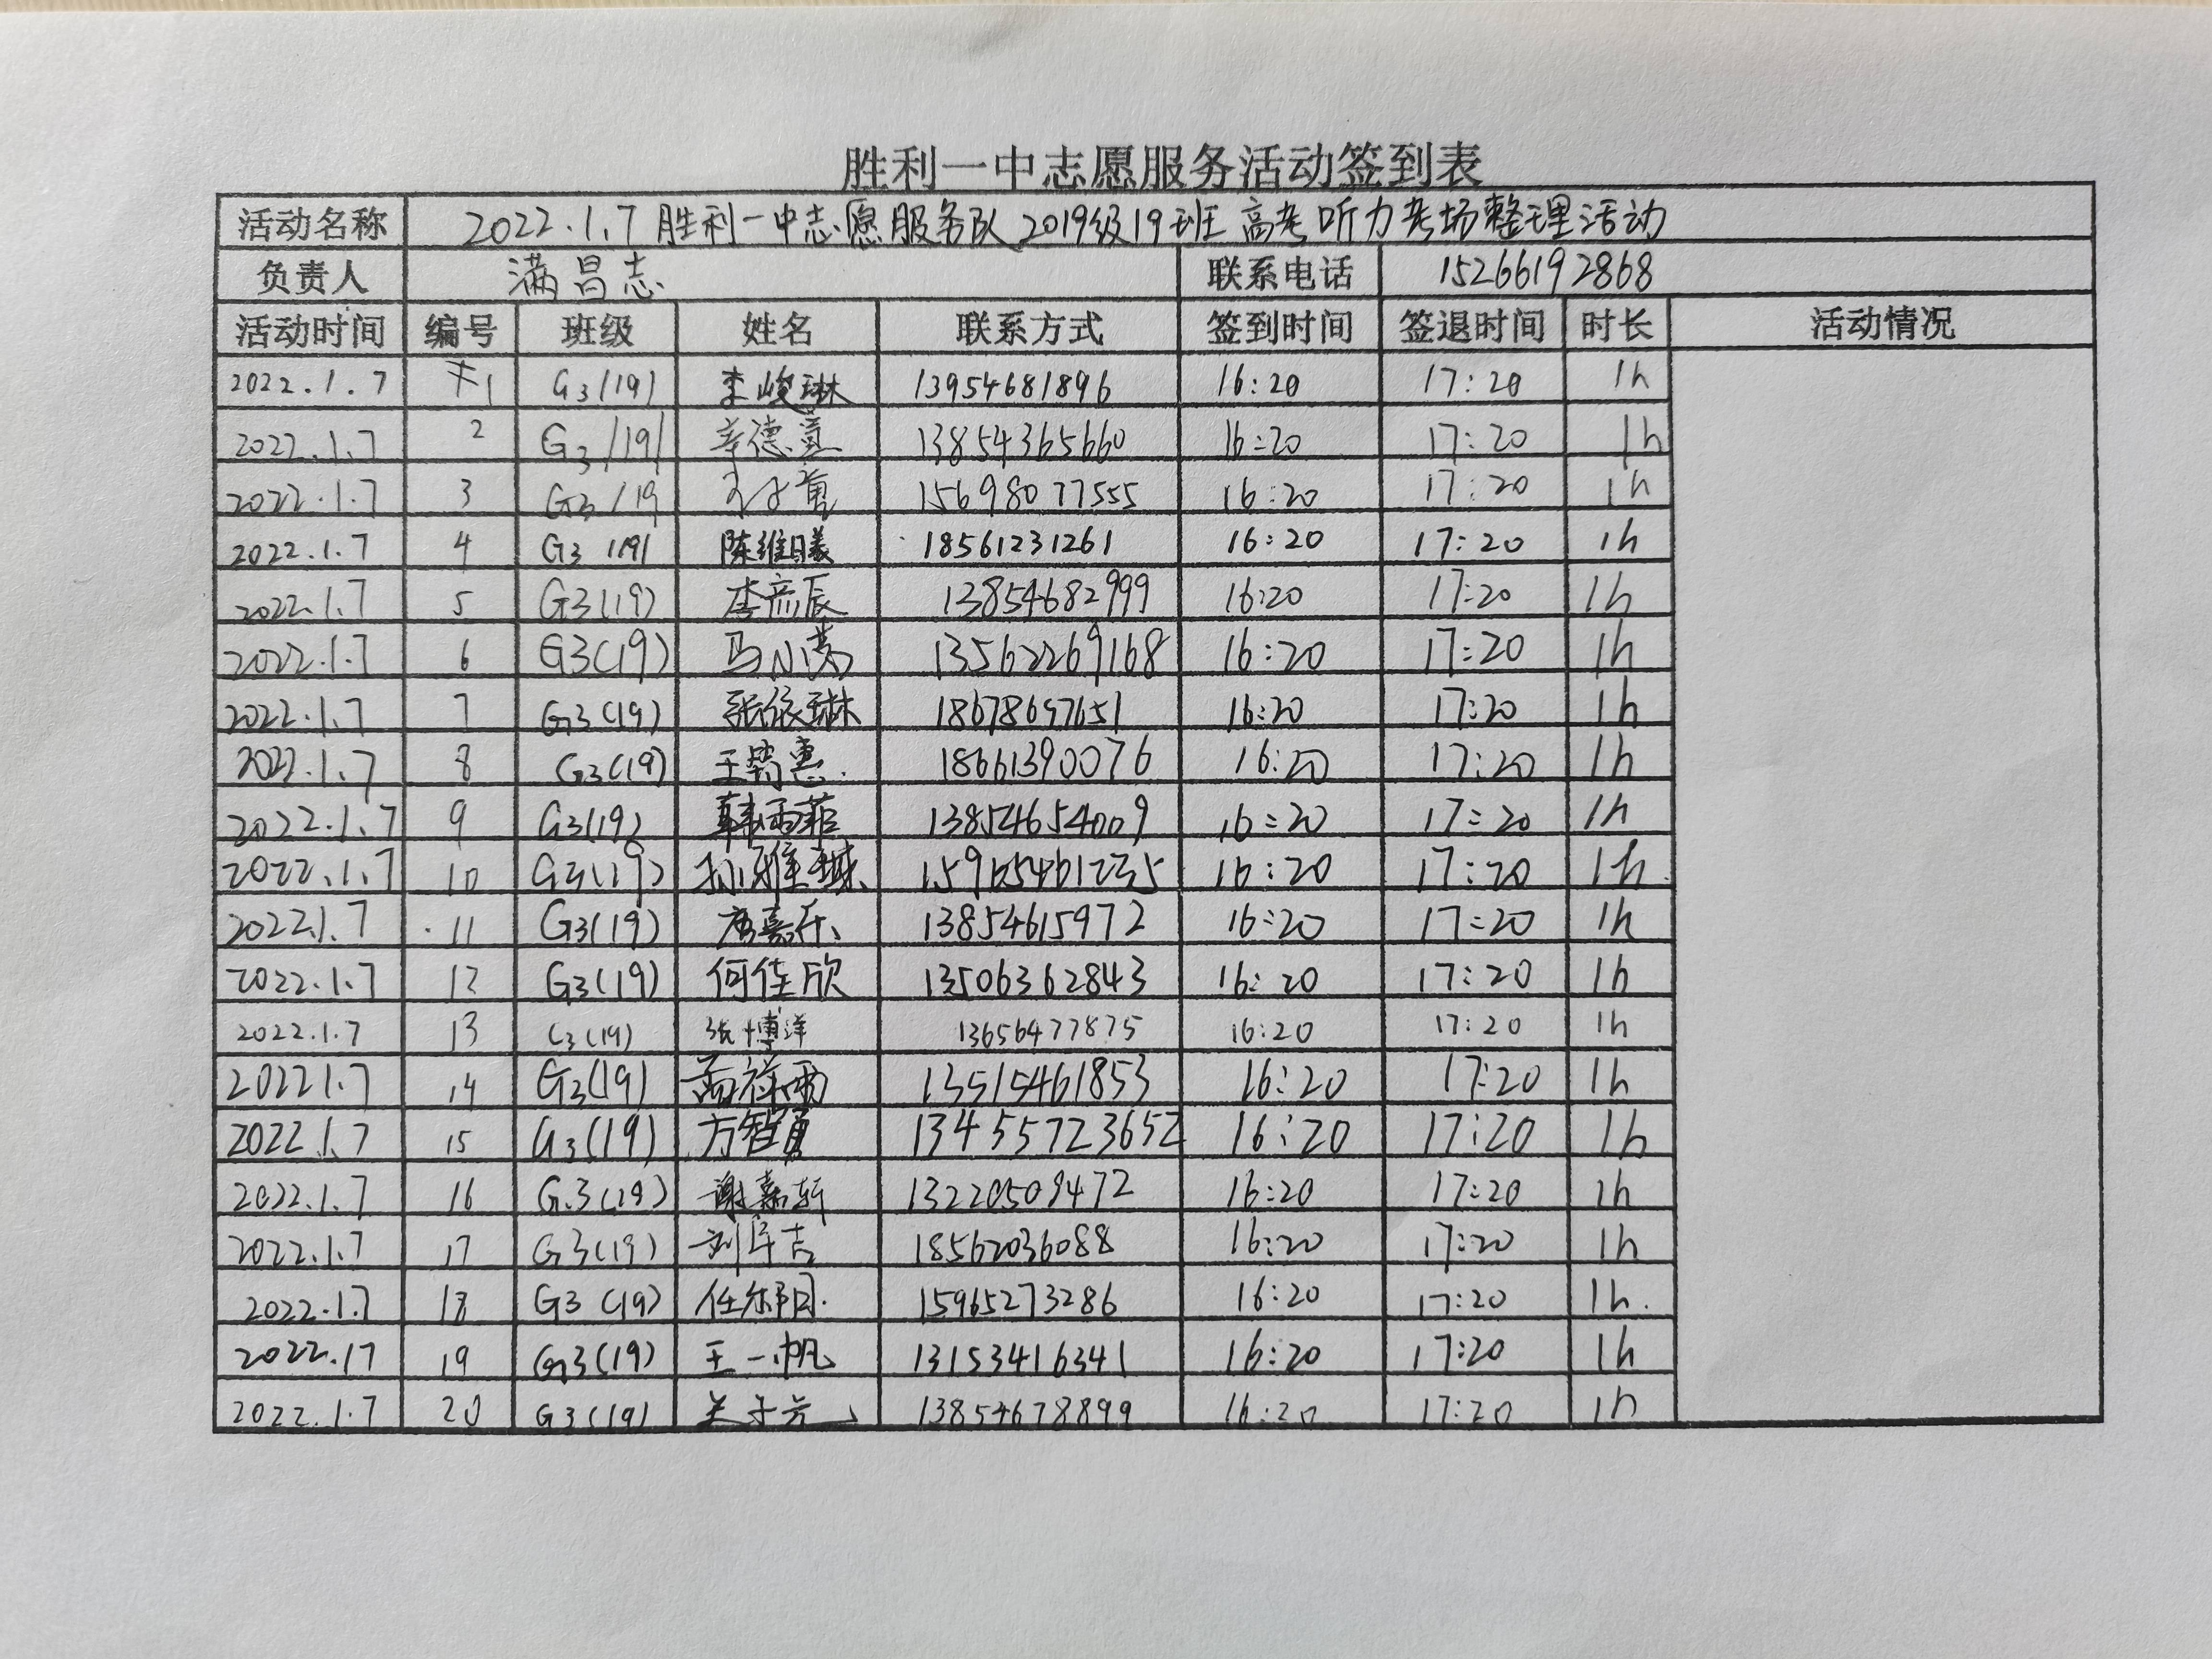 胜利一中志愿服务活动签到表
活动名称 2022.1.7 胜利一中志愿服务队 2019级19班 高考听力考场整理活动
负责人 满昌志 联系电话 15266192868
活动时间 编号 班级 姓名 联系方式 签到时间 签退时间 时长 活动情况
2022.1.7 1 G3(19) 李峻琳 13954681896 16:20 17:20 1h
2022.1.7 2 G3(19) 辛德宣 13854365660 16:20 17:20 1h
2022.1.7 3 G3(19 15698077555 16:20 17:20 1h
2022.1.7 4 G3(19) 陈维曦 18561231261 16:20 17:20 1h
2022.1.7 5 G3(19) 李彦辰 13854682999 16:20 17:20 1h
2022.1.7 6 G3(19) 马小涵 13562269168 16:20 17:20 1h
2022.1.7 7 G3(19) 张依琳 18678697651 16:20 17:20 1h
2022.1.7 8 G3(19) 18661390076 16:20 17:20 1h
2022.1.7 9 G3(19) 韩雨菲 13854654009 16:20 17:20 1h
2022.1.7 10 G3(19) 孙雅琳 15965461235 16:20 17:20 1h
2022.1.7 11 G3(19) 唐嘉乐 13854615972 16:20 17:20 1h
2022.1.7 12 G3(19) 何佳欣 13506362843 16:20 17:20 1h
2022.1.7 13 G3(19) 张博洋 13656477875 16:20 17:20 1h
2022.1.7 14 G3(19) 13515461853 16:20 17:20 1h
2022.1.7 15 G3(19) 方智勇 134557723652 16:20 17:20 1h
2022.1.7 16 G3(19) 谢嘉轩 13220509472 16:20 17:20 1h
2022.1.7 17 G3(19) 18562036088 16:20 17:20 1h
2022.1.7 18 G3(19) 15965273286 16:20 17:20 1h.
2022.17 19 G3(19) 王一帆 13153416341 16:20 17:20 1h
2022.1.7 20 G3(19) 13854678899 16:20 17:20 1h